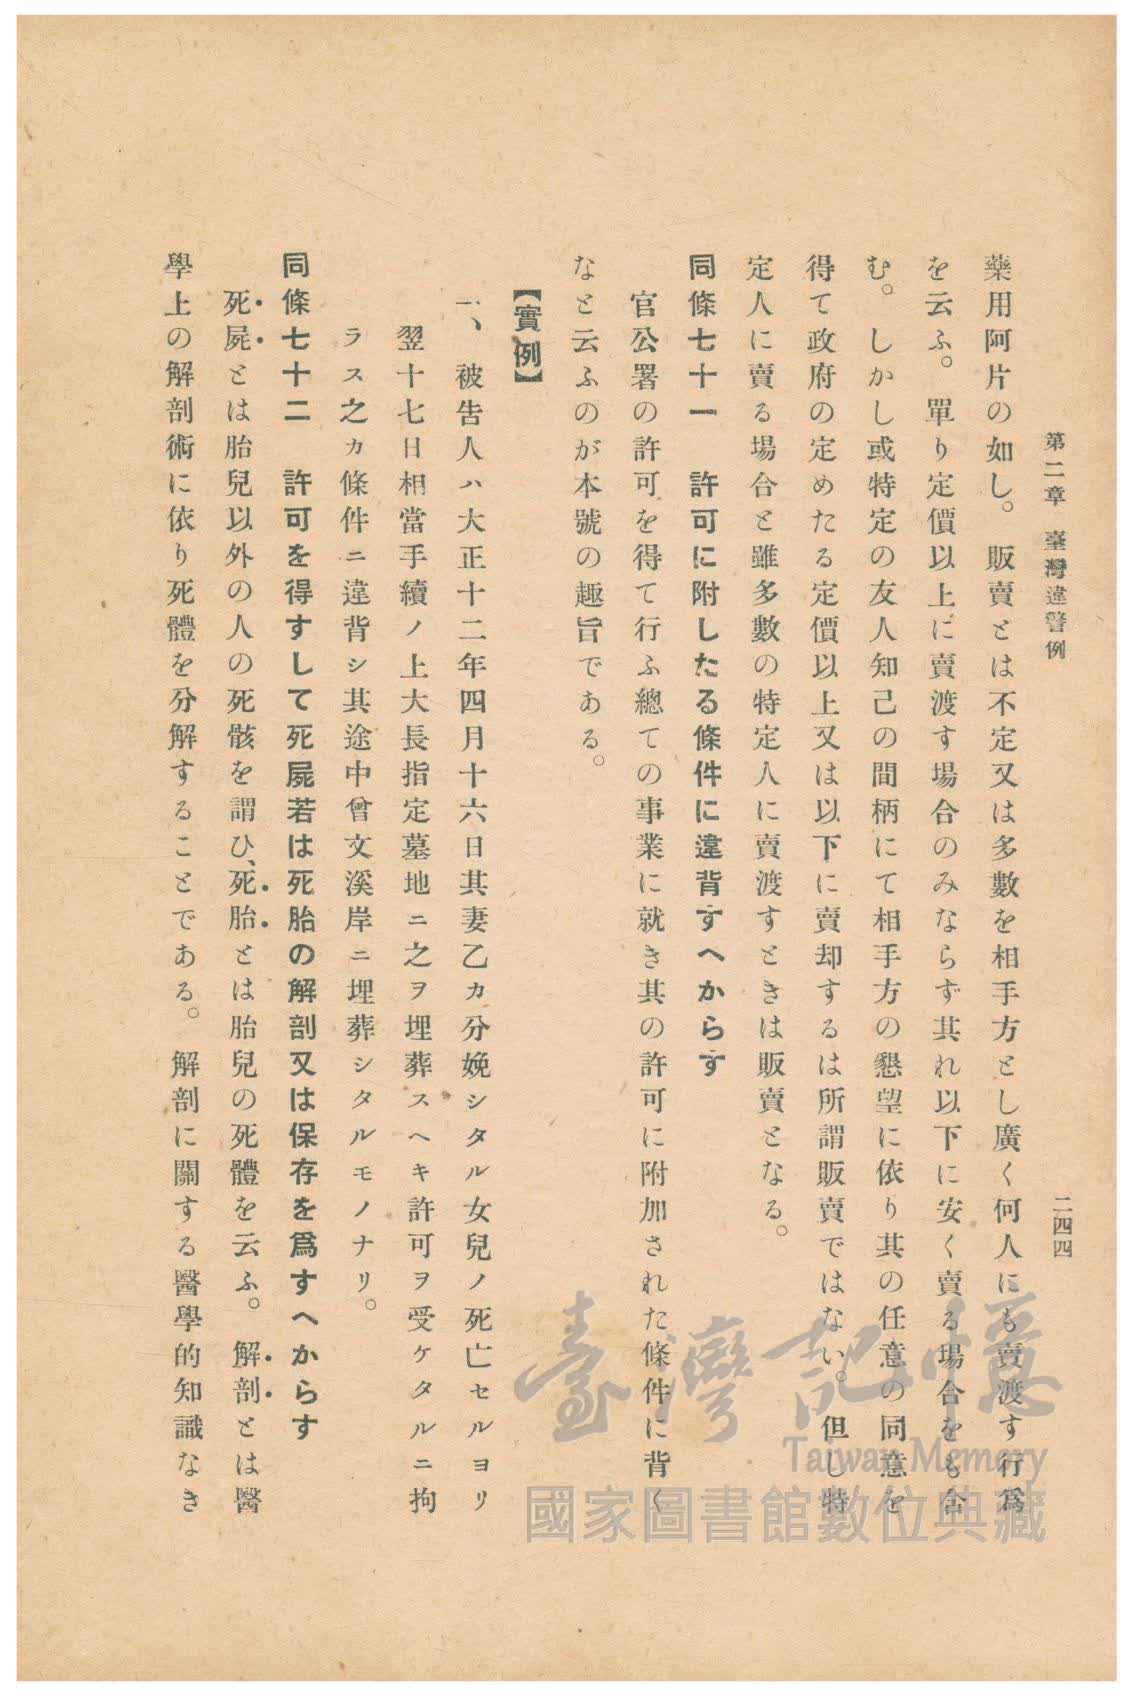 第二章　臺灣違警例
二四四
藥用阿片の如し。販賣とは不定又は多數を相手方とし廣く何人にも賣渡す行爲
を云ふ。單り定價以上に賣渡す場合のみならず其れ以下に安く賣る場合をも含
む。しかし或特定の友人知己の間柄にて相手方の懇望に依り其の任意の同意を
得て政府の定めたる定價以上又は以下に賣却するは所謂販賣ではない。但し特
定人に賣る場合と雖多數の特定人に賣渡すときは販賣となる。
同條七十一　許可に附したる條件に違背すへからす
官公署の許可を得て行ふ總ての事業に就き其の許可に附加された條件に背く
なと云ふのが本號の趣旨である。
【實例】
一、被告人ハ大正十二年四月十六日其妻乙カ分娩シタル女兒ノ死亡セルヨリ
翌十七日相當手續ノ上大長指定墓地ニ之ヲ埋葬スヘキ許可ヲ受ケタルニ拘
ラス之カ條件ニ違背シ其途中曾文溪岸ニ埋葬シタルモノナリ。
同條七十二　許可を得すして死屍若は死胎の解剖又は保存を爲すへからす
死屍とは胎兒以外の人の死骸を謂ひ、死胎とは胎兒の死體を云ふ。解剖とは醫
學上の解剖術に依り死體を分解することである。解剖に關する醫學的知識なき
臺灣記憶
Taiwan Memory
國家圖書館數位典藏